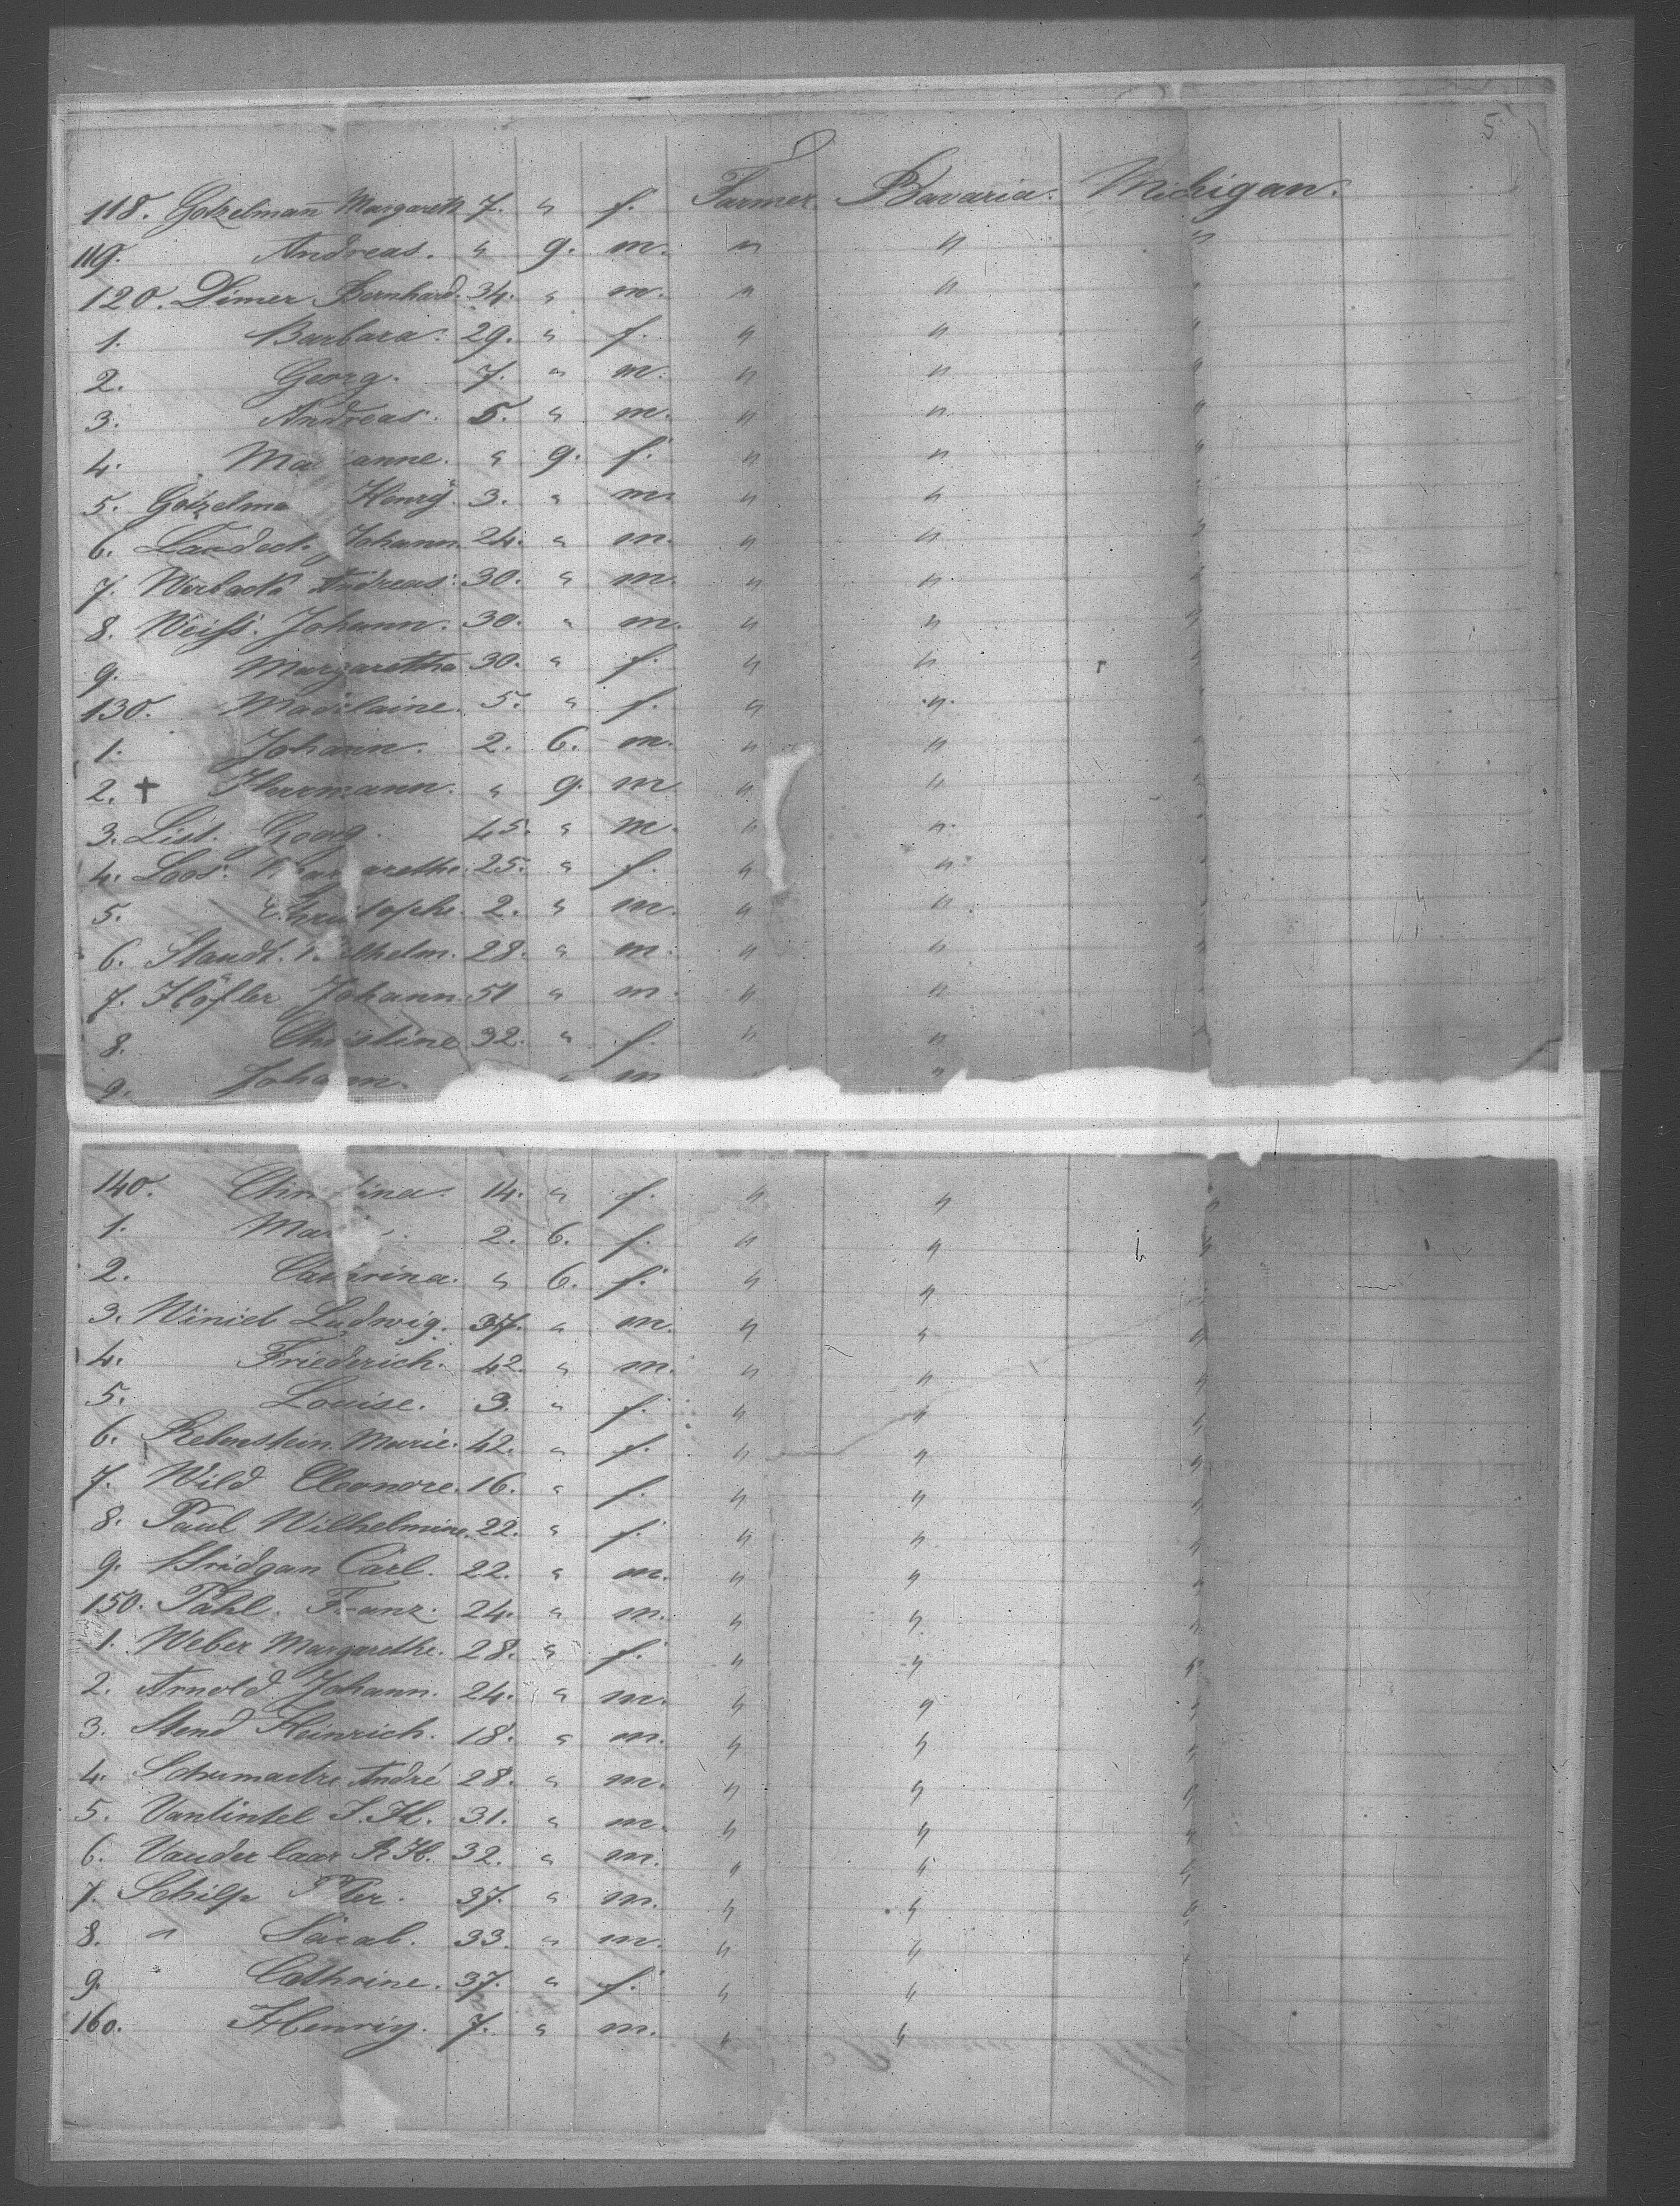 5
118. Gotzelmann Margareth 7. " f. Farmer. Bavaria. Michigan.
119. Andreas. " 9. m. " " "
120. Dimer Bernhard. 34. " m. " " "
1. Barbara. 29. " f. " " "
2. Georg. 7. " m. " " "
3. Andreas. 5. " m. " " "
4. Ma anne. " 9. f. " " "
5. Gotzelma Henry. 3. " m. " " "
6. Johann. 24. " m. " " "
7. Andreas. 30. " m. " " "
8. Weiss. Johann. 30. " m. " " "
9. Margaretha 30. " f. " " "
130. Madelaine. 5. " f. " " "
1. Johann. 2. 6. m. " " "
2. † Herrmann. " 9. m " " "
3. List. Georg. 45. " m. " " "
4. Loos. arethe. 25. " f. " " "
5. Christophe. 2. " m. " " "
6. Staudt. W lhelm. 28. " m. " " "
7. Höfler Johann. 51 " m. " " "
8. Christine 32. " f. " " "
9. Johann. " m "
140. Chri tina. 14. " f. " " "
1. Mar 2. 6. f. " " "
2. Cathrina. " 6. f. " " "
3. Ludwig. 37. " m. " " "
4. Friederich. 42. " m. " " "
5. Louise. 3. " f. " " "
6. Rebenstein Marie. 42. " f. " " "
7. Wild Eleonore. 16. " f. " " "
8. Paul Wilhelmine. 22. " f. " " "
9. Carl. 22. " m. " " "
150. Pahl. Franz. 24. " m. " " "
1. Weber Margarethe. 28. " f. " " "
2. Arnold Johann. 24. " m. " " "
3. Stend Heinrich. 18. " m. " " "
4. André 28. " m. " " "
5. Vantintel J. H. 31. " m. " " "
6. Vander laar R. H. 32. " m. " " "
7. Schilp P ter. 37. " m. " " "
8. " 33. " m. " " "
9. " Cathrine. 37. " f. " "
160. Henriy. 7. " m. " "